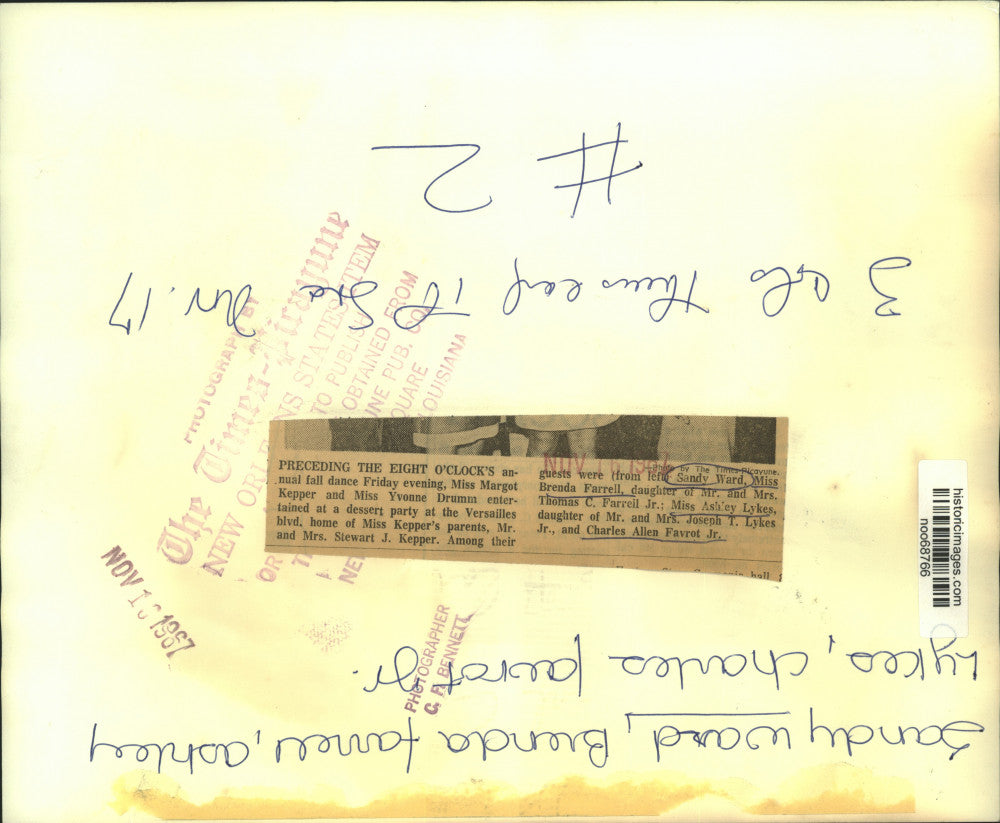 # 2
3 cols
Nov. 17
PHOTOGRAPH BY
The Times-Picayune
NEW ORLEANS STATES SYSTEM
TO PUBLISH
OBTAINED FROM
PUB. CO.
SQUARE
LOUISIANA
PRECEDING THE EIGHT O'CLOCK'S an-
nual fall dance Friday evening, Miss Margot
Kepper and Miss Yvonne Drumm enter-
tained at a dessert party at the Versailles
blvd, home of Miss Kepper's parents, Mr.
and Mrs. Stewart J. Kepper. Among their
by The Times-Picayune.
guests were (from left) Sandy Ward, Miss
Brenda Farrell, daughter of Mr. and Mrs.
Thomas C. Farrell Jr.; Miss Ashley Lykes,
daughter of Mr. and Mrs. Joseph T. Lykes
Jr., and Charles Allen Favrot Jr.
NOV
historicimages.com
noo68766
NOV 1 1967
PHOTOGRAPHER
G. P. BENNETT
Sandy Ward, Brenda Farrell, Ashley
Lykes, Charles Favrot Jr.